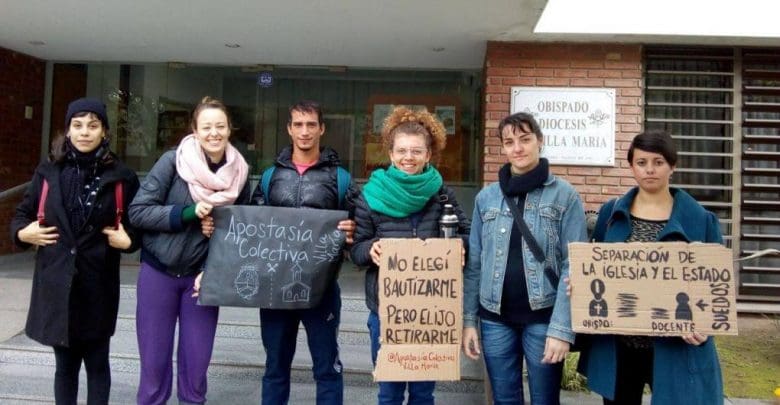 OBISPADO
DIOCESIS
VILLA MARIA
APOSTASÍA
COLECTIVA
VILLA
MARÍA
NO ELEGÍ
BAUTIZARME
PERO ELIJO
RETIRARME.
@APOSTASÍA COLECTIVA
VILLA MARIA
SEPARACIÓN DE
LA IGLESIA Y EL ESTADO
SUELDOS
OBISPO:
DOCENTE